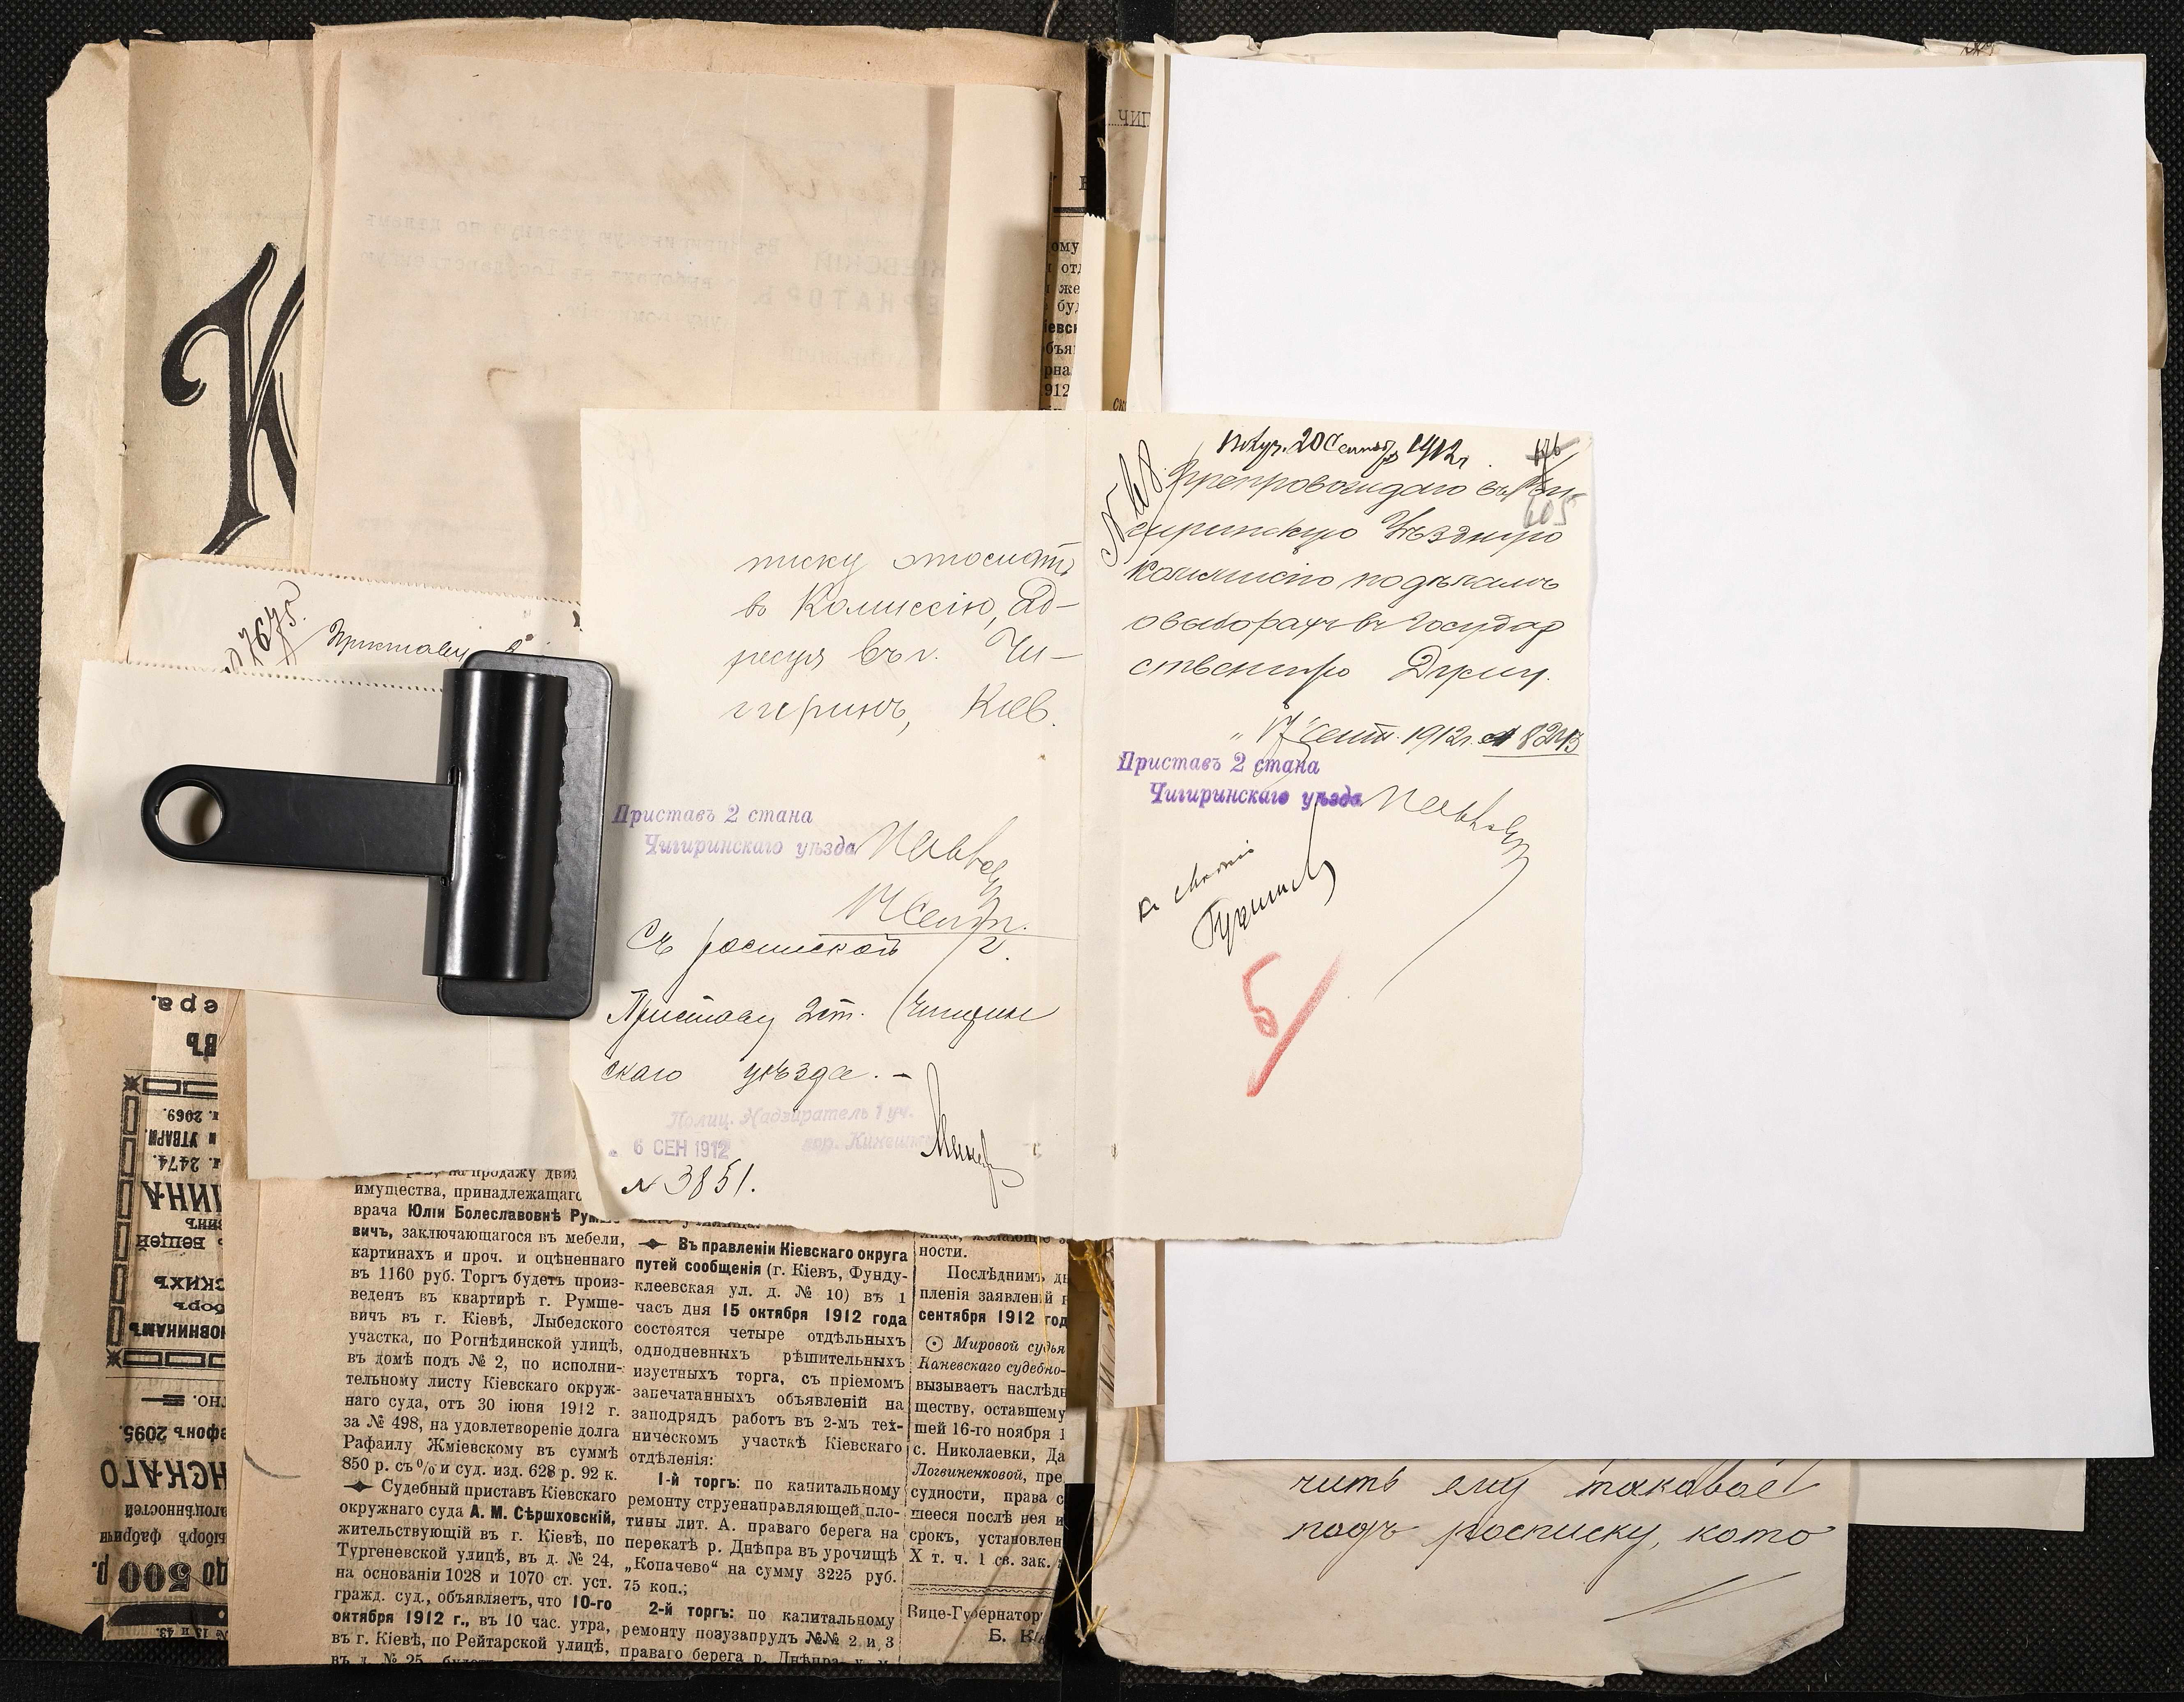 К
№ 7675.
Приставу 2
тиску отослать
въ Комиссію, Ад-
ресуя въ г. Чи-
гиринъ, Кіев.
Приставъ 2 стана
Чигиринскаго уѣзда
17 Сент.
Съ роспиской
Приставу 2 ст. Чигирин
скаго уѣзда. –
Полиц. Надзиратель 1 уч.
гор. Кинешмы
6 СЕН 1912
№ 3851.
Получ. 20 Сентябр 1912 г.
176
605
№ 68
Препровождаю въ Чи-
гиринскую Уѣздную
Комиссію по дѣламъ
о выборахъ въ Государ
ственную Думу.
„17" Сент. 1912 г. № 8243
Приставъ 2 стана
Чигиринскаго уѣзда
Къ
5/
чить ему таковое
подъ росписку, кото
на продажу дви
имущества, принадлежащаго
врача Юліи Болеславовнѣ Румше-
вичъ, заключающагося въ мебели,
картинахъ и проч. и оцѣненнаго
въ 1160 руб. Торгъ будетъ произ-
веденъ въ квартирѣ г. Румше-
вичъ въ г. Кіевѣ, Лыбедского
участка, по Рогнѣдинской улицѣ,
въ домѣ подъ № 2, по исполни-
тельному листу Кіевскаго окруж-
наго суда, отъ 30 іюня 1912 г.
за № 498, на удовлетвореніе долга
Рафаилу Жміевскому въ суммѣ
850 р. съ % и суд. изд. 628 р. 92 к.
Судебный приставъ Кіевскаго
окружнаго суда А. М. Сѣршховскій,
жительствующій въ г. Кіевѣ, по
Тургеневской улицѣ, въ д. № 24,
на основаніи 1028 и 1070 ст. уст.
гражд. суд., объявляетъ, что 10-го
октября 1912 г., въ 10 час. утра,
въ г. Кіевѣ, по Рейтарской улицѣ,
въ д. № 25, будетъ
Въ правленіи Кіевскаго округа
путей сообщенія (г. Кіевъ, Фунду-
клеевская ул. д. № 10) въ 1
часъ дня 15 октября 1912 года
состоятся четыре отдѣльныхъ
однодневныхъ рѣшительныхъ
изустныхъ торга, съ пріемомъ
запечатанныхъ объявленій на
заподрядъ работъ въ 2-мъ тех-
ническомъ участкѣ Кіевскаго
отдѣленія:
1-й торгъ: по капитальному
ремонту струенаправляющей пло-
тины лит. А. праваго берега на
перекатѣ р. Днѣпра въ урочищѣ
„Копачево" на сумму 3225 руб.
75 коп.;
2-й торгъ: по капитальному
ремонту позузапрудъ №№ 2 и 3
праваго берега р. Днѣпра
ности.
Послѣднимъ
пленія заявленій
сентября 1912 год
Мировой судья
Каневскаго судебно-
вызываетъ наслѣдн
ществу, оставшему
шей 16-го ноября 1
с. Николаевки, Да
Логвиненковой, пре
судности, права с
щееся послѣ нея и
срокъ, установлен
X т. ч. 1 св. зак.
Вице-Губернатор